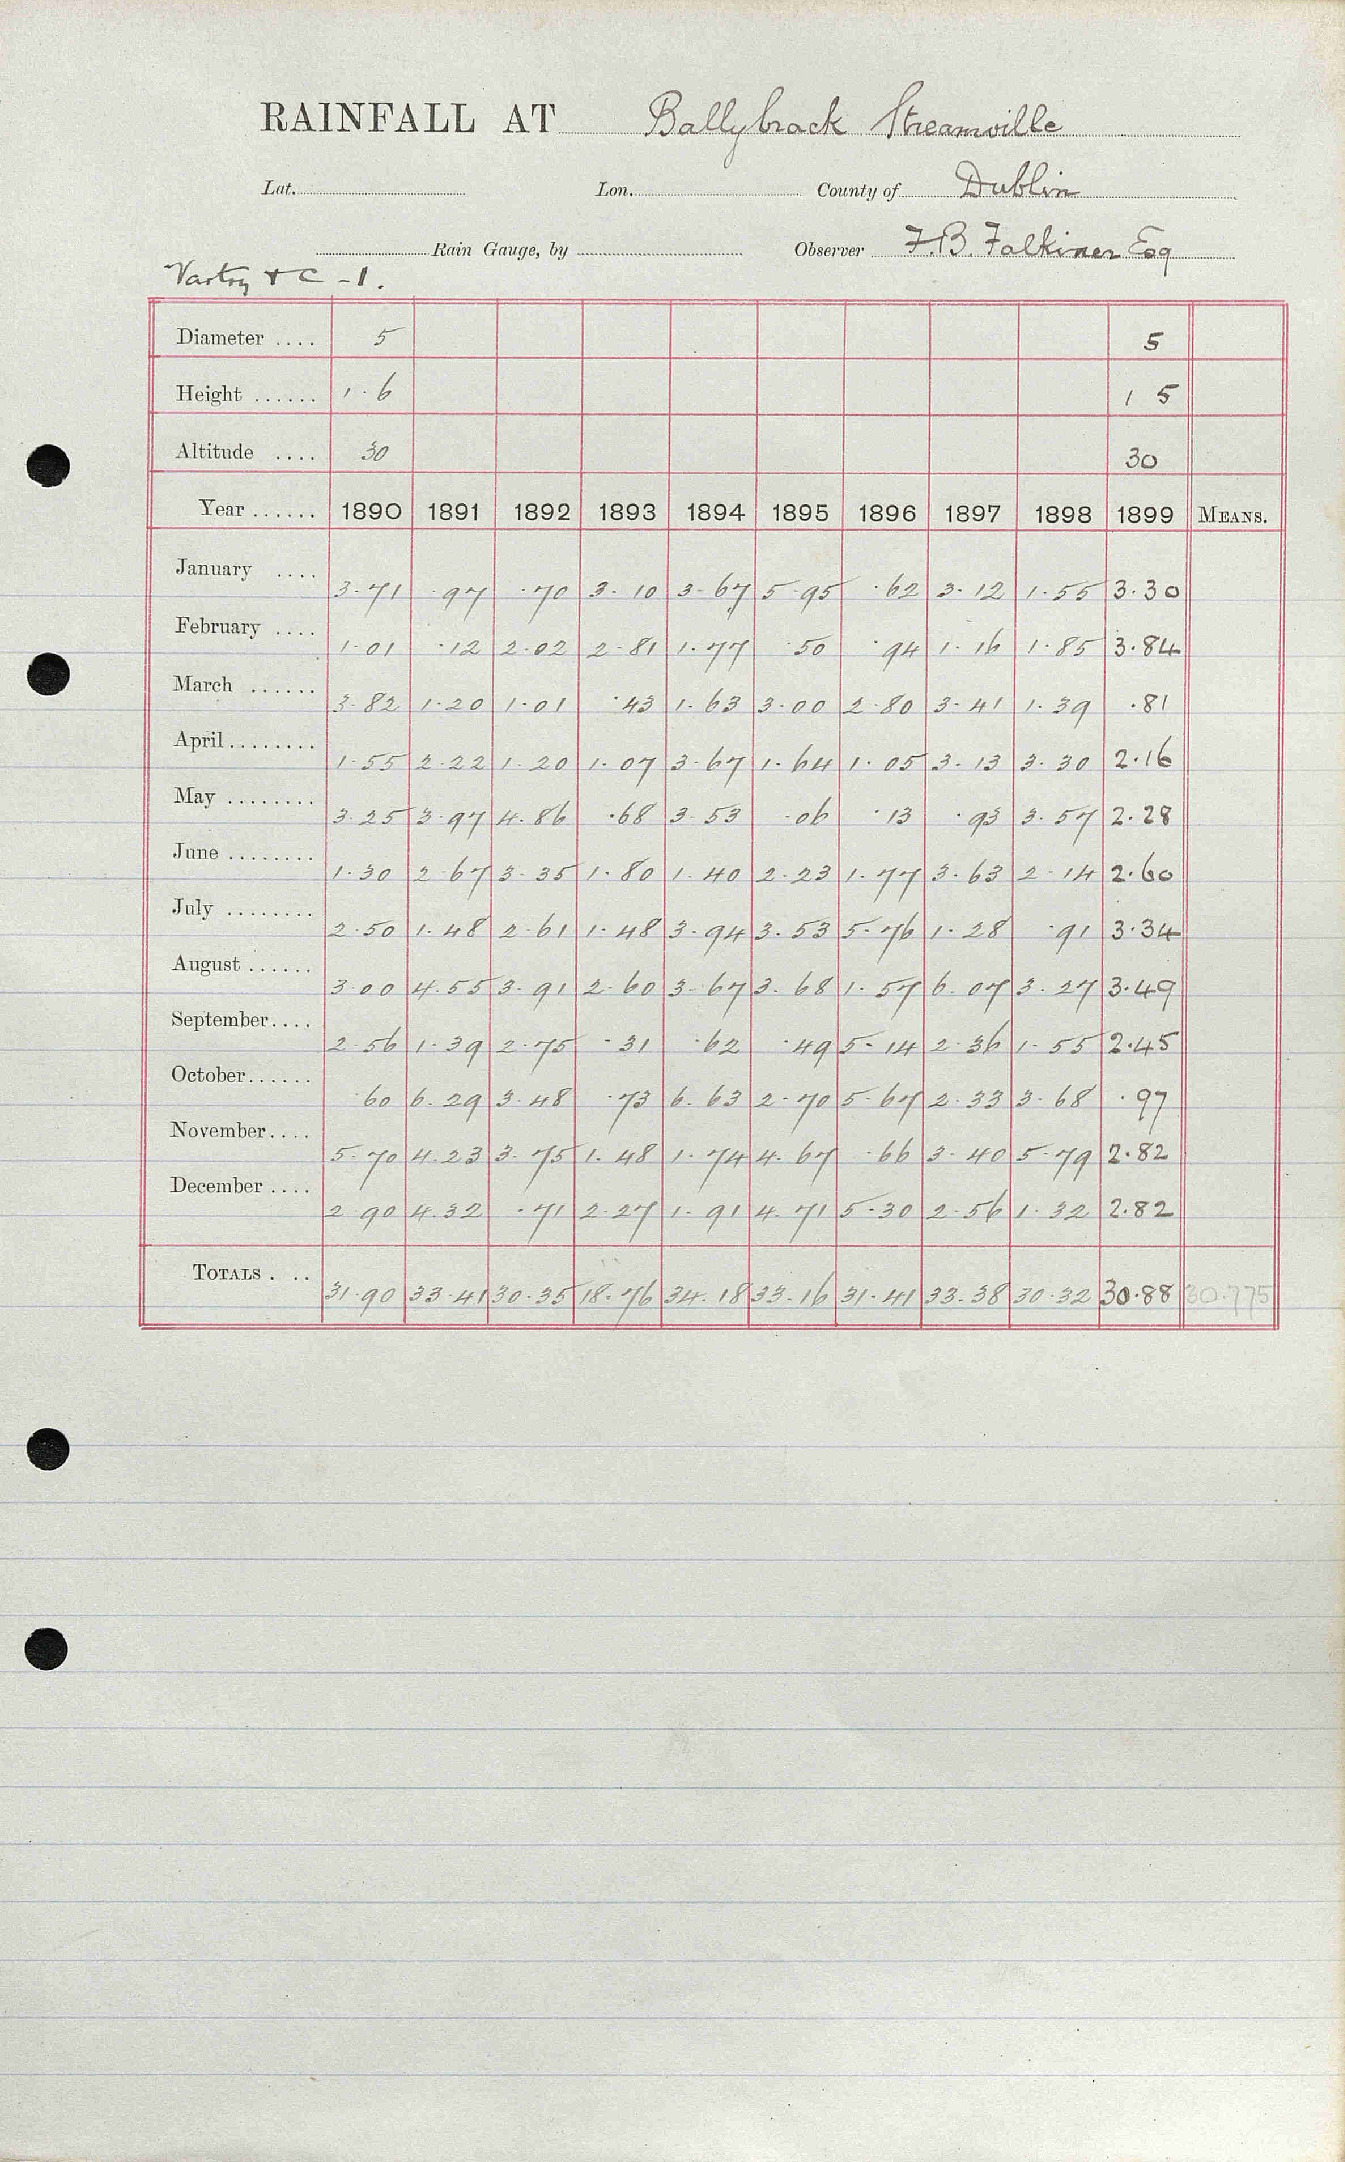 RAINFALL AT Ballybrack Streamville
Lat. Lon. County of Dublin
Rain Gauge, by Observer F.B. Falkiner Esq
Vartry & C - 1.
Diameter .... 5 5
Height ...... 1 · 6 1 5
Altitude .... 30 30
Year ...... 1890 1891 1892 1893 1894 1895 1896 1897 1898 1899 MEANS.
January .... 3·71 ·97 ·70 3·10 3·67 5·95 ·62 3·12 1·55 3·30
February .... 1·01 ·12 2·02 2·81 1·77 ·50 ·94 1·16 1·85 3·84
March ...... 3·82 1·20 1·01 ·43 1·63 3·00 2·80 3·41 1·39 ·81
April ........ 1·55 2·22 1·20 1·07 3·67 1·64 1·05 3·13 3·30 2·16
May ........ 3·25 3·97 4·86 ·68 3·53 ·06 ·13 ·93 3·57 2·28
June ........ 1·30 2·67 3·35 1·80 1·40 2·23 1·77 3·63 2·14 2·60
July ........ 2·50 1·48 2·61 1·48 3·94 3·53 5·76 1·28 ·91 3·34
August ...... 3·00 4·55 3·91 2·60 3·67 3·68 1·57 6·07 3·27 3·49
September .... 2·56 1·39 2·75 ·31 ·62 ·49 5·14 2·36 1·55 2·45
October ...... ·60 6·29 3·48 ·73 6·63 2·70 5·67 2·33 3·68 ·97
November .... 5·70 4·23 3·75 1·48 1·74 4·67 ·66 3·40 5·79 2·82
December .... 2·90 4·32 ·71 2·27 1·91 4·71 5·30 2·56 1·32 2·82
TOTALS . .. 31·90 33·41 30·35 18·76 34·18 33·16 31·41 33·38 30·32 30·88 30·775